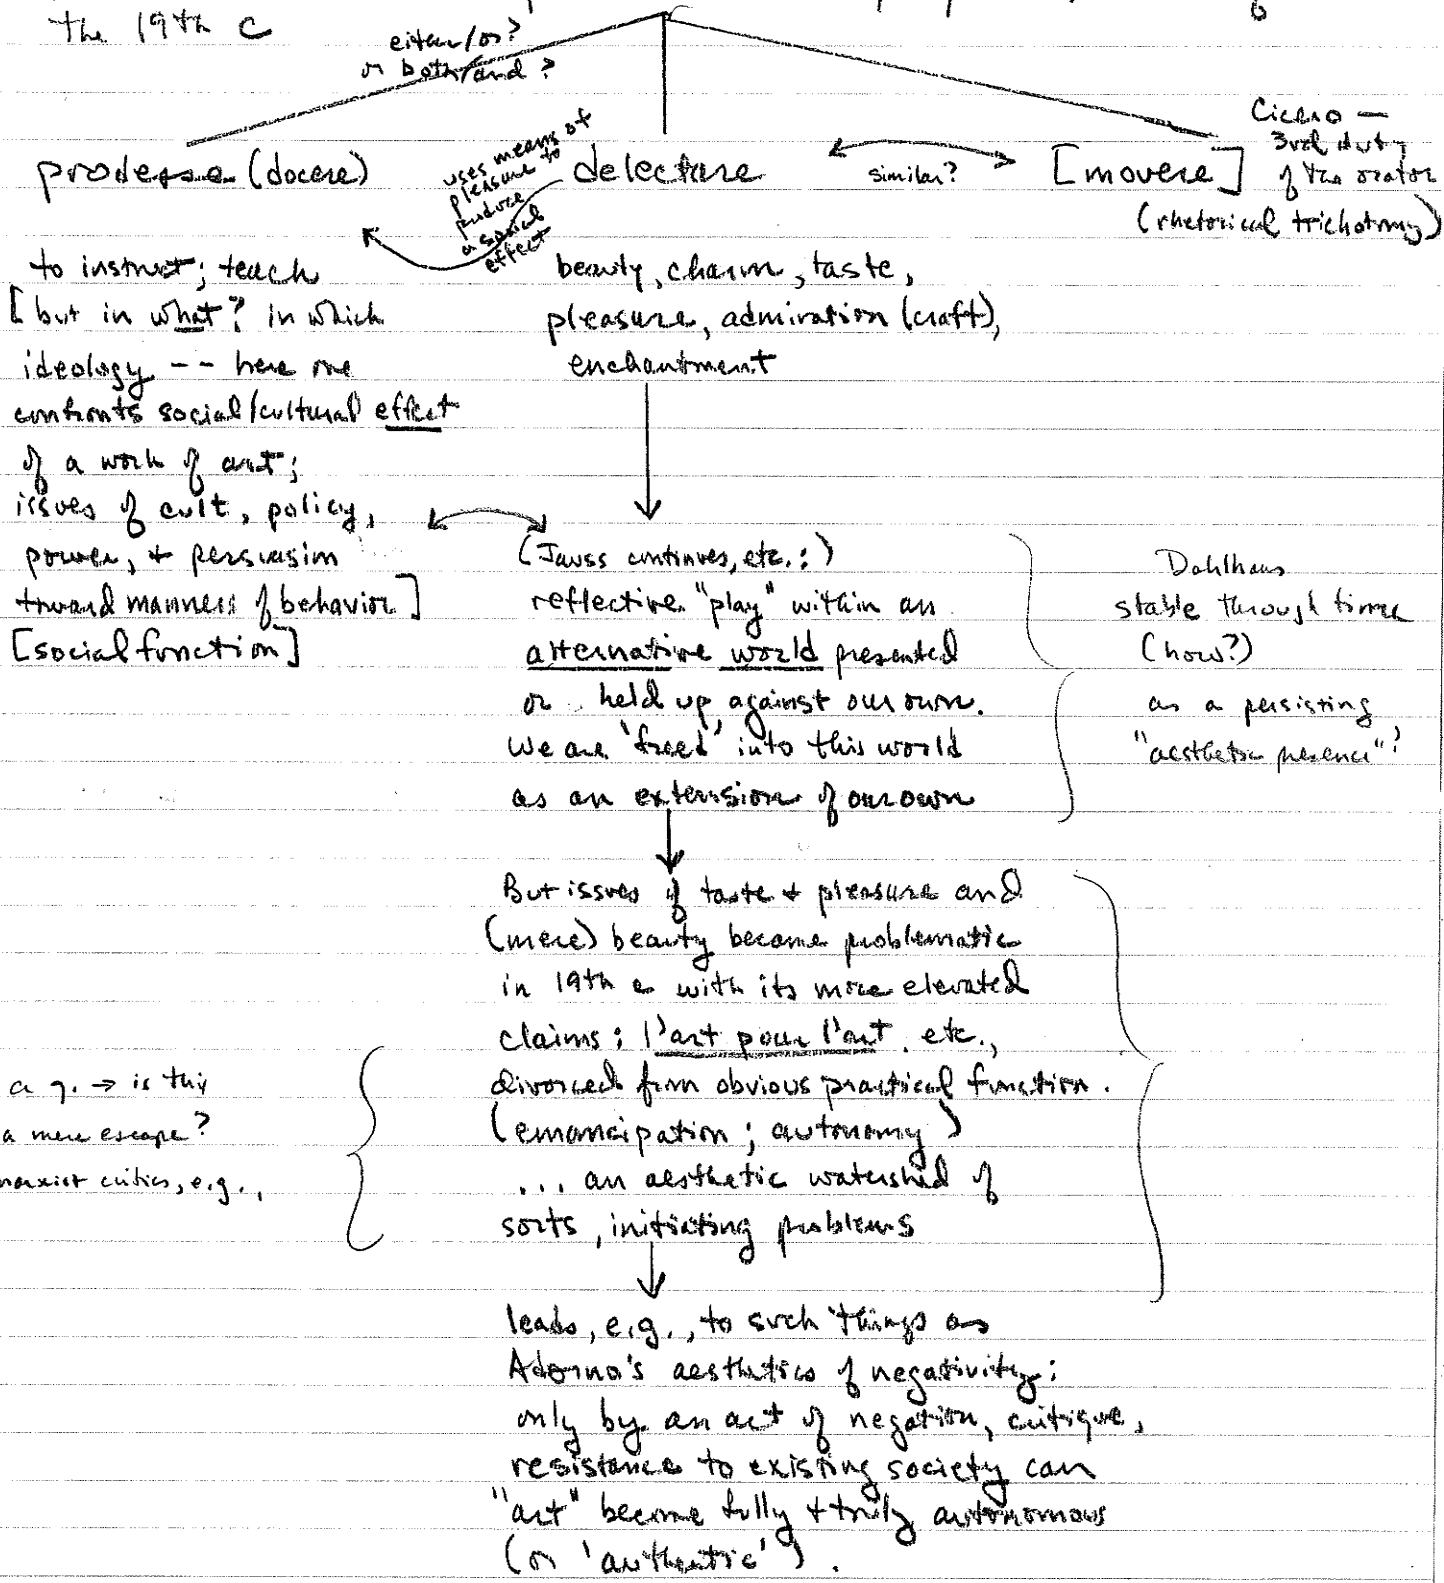 the 19th c
either/or?
or both/and?
prodesse (docere)
uses means of
pleasure to
produce
a social
effect
delectare
similar?
[movere]
Cicero —
3rd duty
of the orator
(rhetorical trichotomy)
to instruct; teach
[but in what? in which
ideology -- here one
confronts social/cultural effect
of a work of art;
issues of cult, policy,
power, + persuasion
toward manners of behavior]
[social function]
beauty, charm, taste,
pleasure, admiration (craft),
enchantment
(Jauss continues, etc.:)
reflective "play" within an
alternative world presented
or held up against our own.
We are 'freed' into this world
as an extension of our own
Dahlhaus
stable through time
(how?)
as a persisting
"aesthetic presence"?
But issues of taste + pleasure and
(mere) beauty become problematic
in 19th c with its more elevated
claims: l'art pour l'art, etc.,
divorced from obvious practical function.
(emancipation; autonomy)
... an aesthetic watershed of
sorts, initiating problems
a q. → is this
a mere escape?
marxist critics, e.g.,
leads, e.g., to such things as
Adorno's aesthetics of negativity:
only by an act of negation, critique,
resistance to existing society can
"art" become fully + truly autonomous
(or 'authentic').